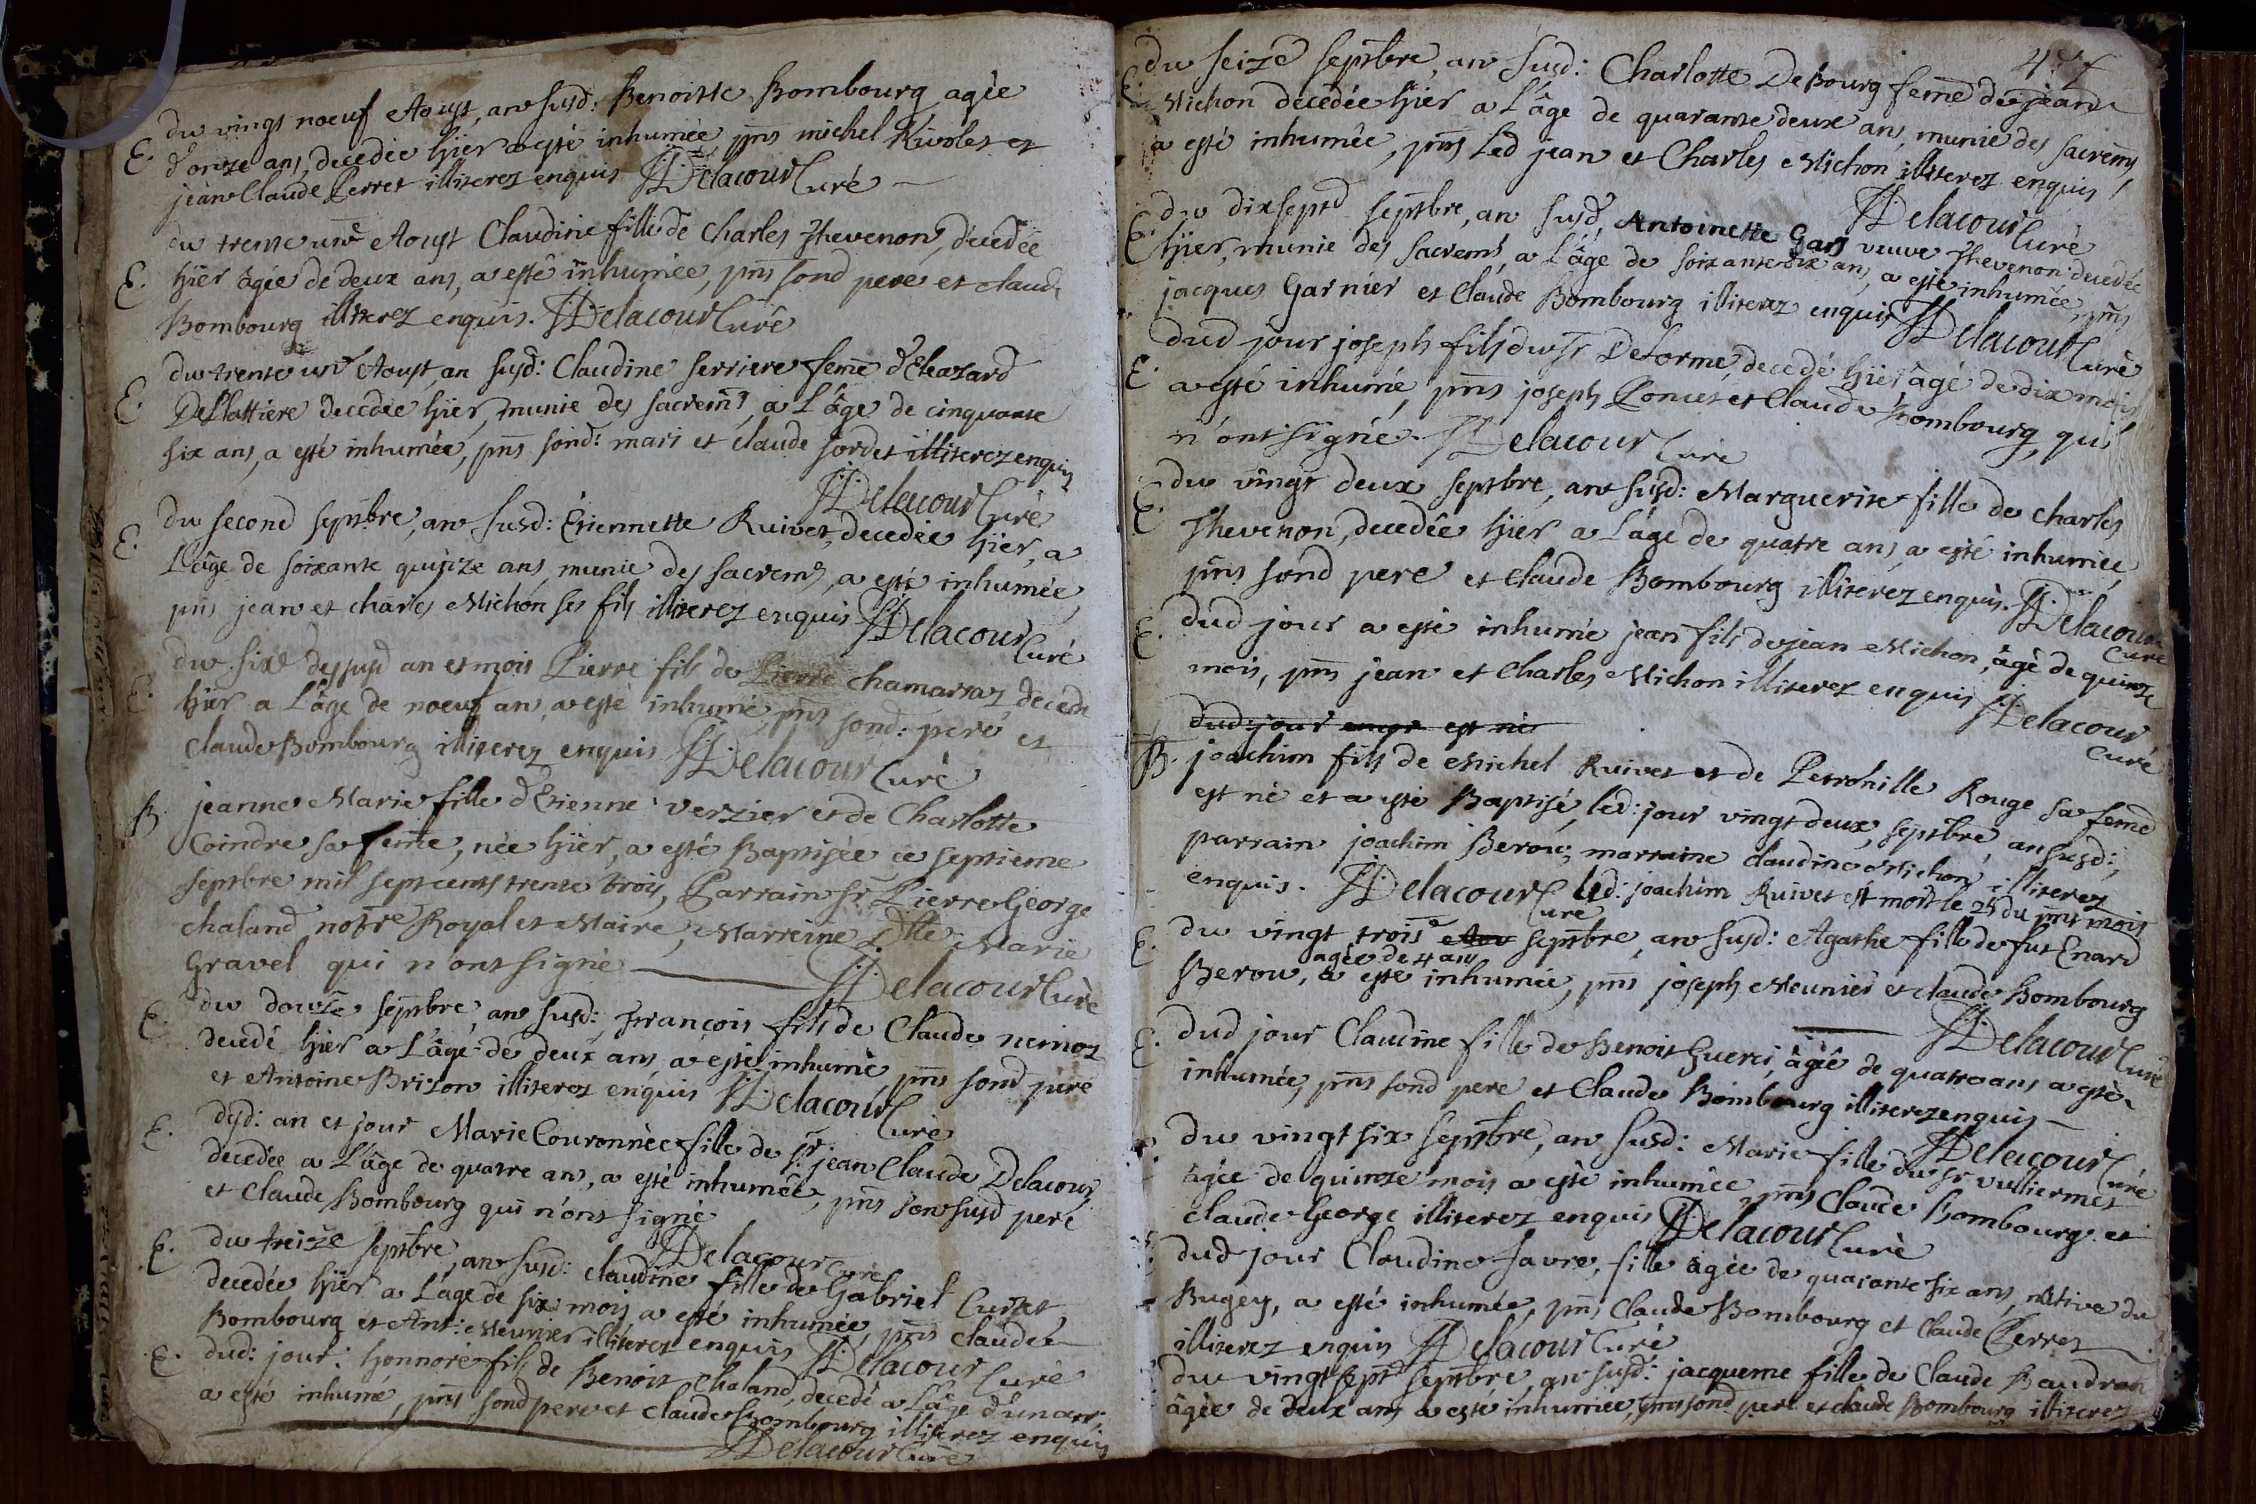 du vingt noeuf Aoust, an susd: Benoitte Bombourg agée
E. d'onze ans, decedée hier a esté inhumée, pnts michel Rivolet et
jean Claude Perret illiterez enquis Delacour Curé
du trente une Aoust Claudine fille de Charles Thevenon, decedée
E. hier agée de deux ans, a esté inhumée, pnts sond pere et claude
Bombourg illiterez enquis. Delacour Curé
du trente un Aoust, an susd: Claudine serriere feme d'Eleazard
E. De Plattiere decedée hier, munie des sacremts, a L'âge de cinquante
six ans, a esté inhumée, pnts sond: mari et claude sordet illiterez enquis
Delacour Curé
du second septbre, an susd: Etiennette Ruivet, decedée hier, a
E. L'âge de soixante quinze ans, munie des sacremts, a esté inhumée,
pnts jean et charles Michon ses fils illiterez enquis Delacour Curé
du sixe dessusd an et mois Pierre fils de Pierre chamarras, decedé
E. hier a L'âge de noeuf an, a esté inhumé, pnts sond: peré et
claude Bombourg illiterez enquis Delacour Curé
B. jeanne Marie fille d'Etienne verzier et de Charlotte
Coindre sa feme, née hier, a esté Baptisée ce septieme
septbre mil sept cents trente trois, Parrain Sr Pierre George
chaland, notre Royal et Maire, Marreine Dlle Marie
Gravel qui n'ont signé Delacour Curé
du douze septbre an susd: François fils de Claude nemoz
E. decedé hier a L'âge de deux ans, a esté inhumé, pnts sond pere
et Antoine Brizon illiterez enquis Delacour Curé
E. dsd: an et jour Marie Couronnée fille de Sr jean Claude Delacour
decedée a L'âge de quatre ans, a esté inhumée, pnts son susd pere
et Claude Bombourg qui n'ont signé Delacour Curé
E. du treize septbre, an susd: claudine fille de Gabriel Curtet,
decedée hier a L'âge de six mois, a esté inhumée, pnts claude
Bombourg et Ant: Meunier illiterez enquis Delacour Curé
E. dud: jour: honnoré fils de Benoit chaland, decedé a L'âge d'un an
a esté inhumé, pnts sond pere et claude Bombourg illiterez enquis
Delacour Curé
du seize septbre, an susd: Charlotte De Bourg feme de jean
E. Michon decedée hier a L'âge de quarante deux ans, munie des sacremts,
a esté inhumée, pnts Led jean et Charles Michon illiterez enquis
Delacour Curé
du dixsept septbre, an susd, Antoinette Gary veuve Thevenon decedée
E. hier, munie des sacremts, a L'âge de soixante dix ans, a esté inhumée, pnts
jacques Garnier et Claude Bombourg illiterez enquis Delacour Curé
dud jour joseph fils du Sr Delorme, decedé hier âgé de dix mois,
E. a esté inhumé, pnts joseph Poncet et Claude Bombourg, qui
n'ont signé. Delacour Curé
du vingt deux septbre, an susd: Marguerite fille de charles
E. Thevenon, decedée hier a L'âge de quatre ans, a esté inhumée,
pnts sond pere et Claude Bombourg illiterez enquis. Delacour Curé
E. dud jour a esté inhumé jean fils de jean Michon, âgé de quinze
mois, pnts jean et Charles Michon illiterez enquis Delacour Curé
dud: jour est né
B. joachim fils de Michel Ruivet et de Petronille Rouge sa feme
est né et a esté Baptisé, led: jour vingt deux septbre, an susd:,
parrain joachim Berou, marraine claudine Michon, illiterez
enquis. Delacour Curé Led: joachim Ruivet est mort le 25 du pnt mois
du vingt trois septbre, an susd: Agathe fille de fut Enard
agée de 4 ans
E. Berou, a esté inhumée, pnts joseph Meunier et claude Bombourg
Delacour Curé
E. dud jour Claudine fille de Benoit Guerci, âgée de quatre ans a esté
inhumée, pnts sond pere et Claude Bombourg illiterez enquis
Delacour Curé
du vingt six septbre, an susd: Marie fille du Sr vulliermet
âgée de quinze mois a esté inhumée pnts Claude Bombourg et
claude George illiterez enquis Delacour Curé
dud jour Claudine favre, fille âgée de quarante six ans, native du
Bugey, a esté inhumée, pnts Claude Bombourg et Claude Perret
illiterez enquis Delacour Curé
du vingt sept septbre, an susd: jacqueme fille de Claude Baudran
âgée de deux ans a esté inhumée, pnts sond pere et claude Bombourg illiterez